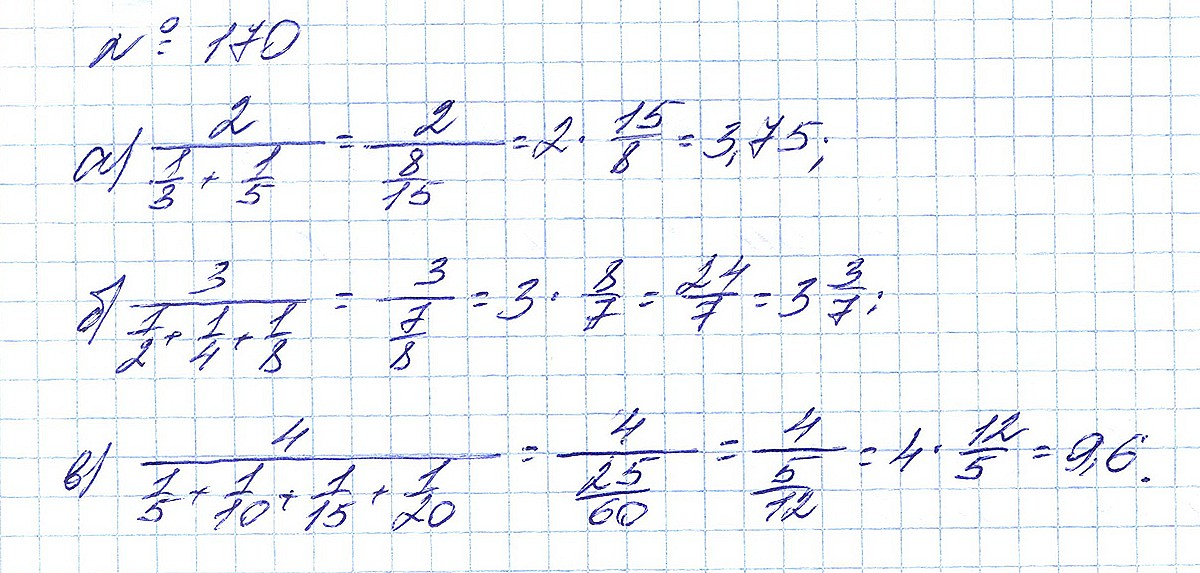 № 170
а) 2/(1/3 + 1/5) = 2/(8/15) = 2 · 15/8 = 3,75;
б) 3/(1/2 + 1/4 + 1/8) = 3/(7/8) = 3 · 8/7 = 24/7 = 3 3/7;
в) 4/(1/5 + 1/10 + 1/15 + 1/20) = 4/(25/60) = 4/(5/12) = 4 · 12/5 = 9,6.